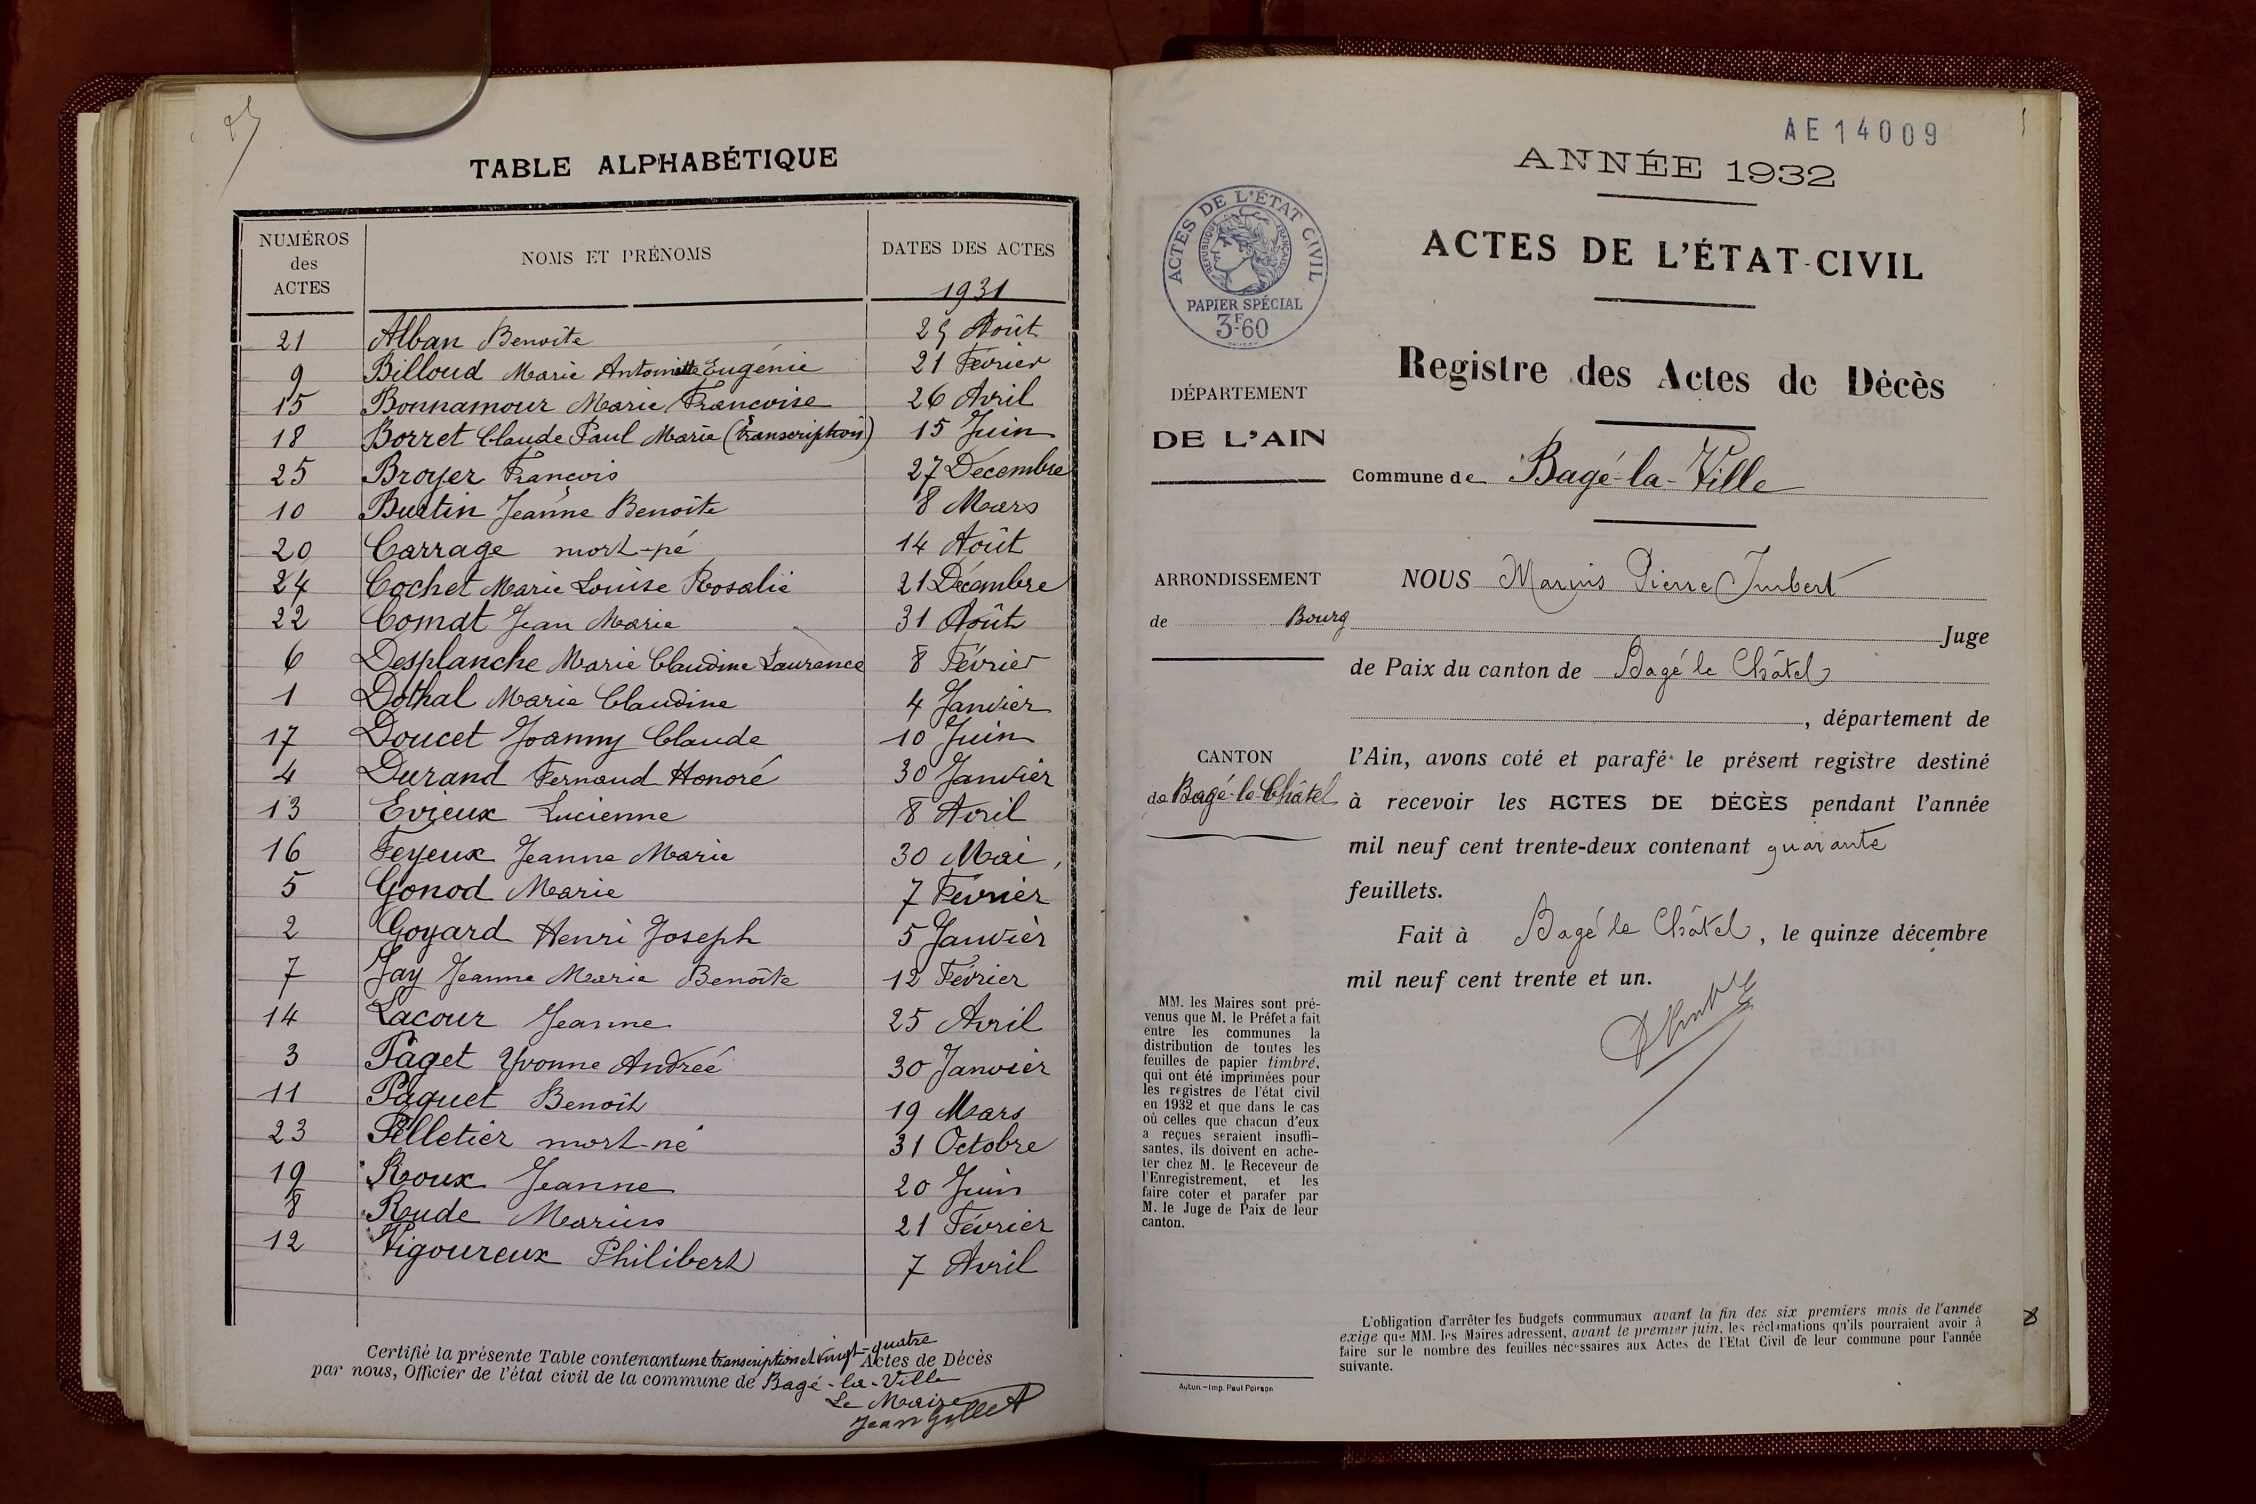 25
TABLE ALPHABÉTIQUE
NUMÉROS des ACTES
NOMS ET PRÉNOMS
DATES DES ACTES
1931
21 Alban Benoîte 25 Août
9 Billoud Marie Antoinette Eugénie 21 Février
15 Bonnamour Marie Françoise 26 Avril
18 Borret Claude Paul Marie (transcription) 15 Juin
25 Broyer François 27 Décembre
10 Burtin Jeanne Benoîte 8 Mars
20 Carrage mort-né 14 Août
24 Cochet Marie Louise Rosalie 21 Décembre
22 Comat Jean Marie 31 Août
6 Desplanche Marie Claudine Laurence 8 Février
1 Dothal Marie Claudine 4 Janvier
17 Doucet Joanny Claude 10 Juin
4 Durand Fernand Honoré 30 Janvier
13 Evieux Lucienne 8 Avril
16 Feyeux Jeanne Marie 30 Mai
5 Gonod Marie 7 Février
2 Goyard Henri Joseph 5 Janvier
7 Jay Jeanne Marie Benoîte 12 Février
14 Lacour Jeanne 25 Avril
3 Paget Yvonne Andréé 30 Janvier
11 Paquet Benoît 19 Mars
23 Pelletier mort-né 31 Octobre
19 Roux Jeanne 20 Juin
8 Rude Marius 21 Février
12 Vigoureux Philibert 7 Avril
Certifié la présente Table contenant une transcription et vingt-quatre Actes de Décès
par nous, Officier de l'état civil de la commune de Bagé-la-Ville
Le Maire
Jean Gillet
AE14009
ANNÉE 1932
ACTES DE L'ÉTAT CIVIL
RÉPUBLIQUE FRANÇAISE
PAPIER SPÉCIAL
3F60
ACTES DE L'ÉTAT-CIVIL
Registre des Actes de Décès
DÉPARTEMENT
DE L'AIN
Commune de Bagé-la-Ville
ARRONDISSEMENT
de Bourg
NOUS Marius Pierre Imbert
Juge
de Paix du canton de Bagé le Châtel
, département de
CANTON
de Bagé-le-Châtel
l'Ain, avons coté et parafé le présent registre destiné
à recevoir les ACTES DE DÉCÈS pendant l'année
mil neuf cent trente-deux contenant quarante
feuillets.
Fait à Bagé le Châtel, le quinze décembre
mil neuf cent trente et un.
MM. les Maires sont pré-
venus que M. le Préfet a fait
entre les communes la
distribution de toutes les
feuilles de papier timbré,
qui ont été imprimées pour
les registres de l'état civil
en 1932 et que dans le cas
où celles que chacun d'eux
a reçues seraient insuffi-
santes, ils doivent en ache-
ter chez M. le Receveur de
l'Enregistrement, et les
faire coter et parafer par
M. le Juge de Paix de leur
canton.
L'obligation d'arrêter les budgets communaux avant la fin des six premiers mois de l'année
exige que MM. les Maires adressent, avant le premier juin, les réclamations qu'ils pourraient avoir à
faire sur le nombre des feuilles nécessaires aux Actes de l'Etat Civil de leur commune pour l'année
suivante.
Autun. - Imp. Paul Poirson